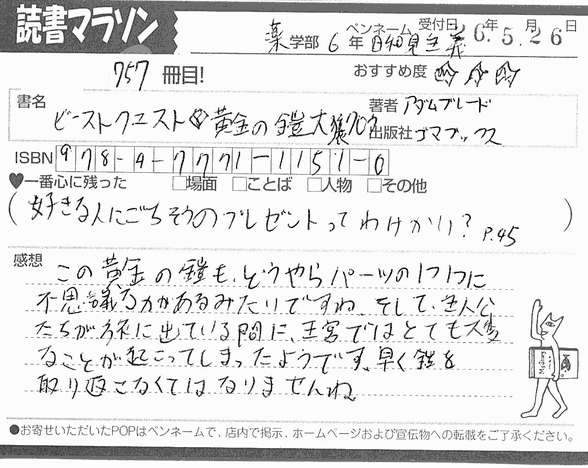 読書マラソン
薬学部 6年 ペンネーム 日和見主義 受付日 26年5月26日
757冊目! おすすめ度
書名 ビーストクエスト⑧ 黄金の鎧 大猿クロウ
著者 アダムブレード
出版社 ゴマブックス
ISBN 978-4-7771-1151-0
♥一番心に残った □場面 □ことば □人物 □その他
(好きな人にごちそうのプレゼントってわけかい? P.45)
感想 この黄金の鎧も、どうやらパーツの1つ1つに
不思議な力があるみたいですね。そして、主人公
たちが旅に出ている間に、王宮ではとても大変
なことが起こってしまったようです。早く鎧を
取り返さなくてはなりませんね
●お寄せいただいたPOPはペンネームで、店内で掲示、ホームページおよび宣伝物への転載をご了承ください。